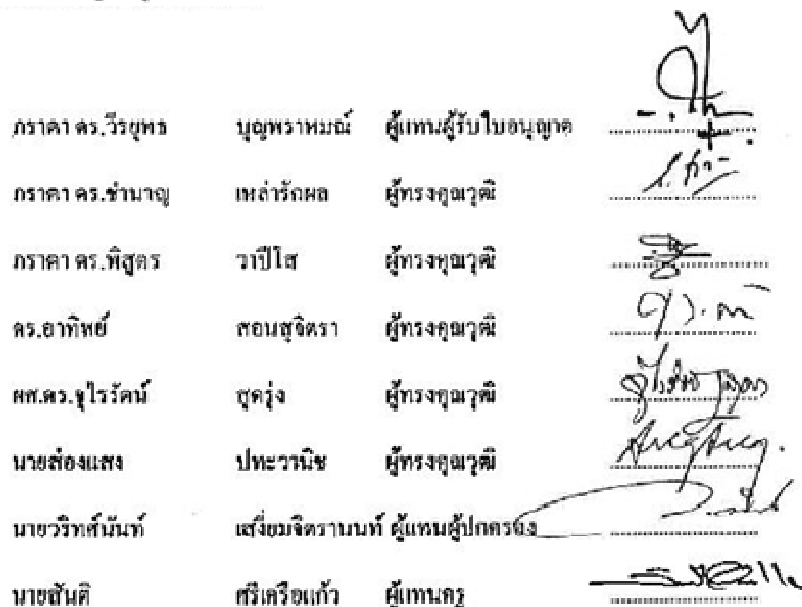 ภราดา ดร.วีรยุทธ บุญพราหมณ์ ผู้แทนผู้รับใบอนุญาต
ภราดา ดร.ชำนาญ เหล่ารักผล ผู้ทรงคุณวุฒิ
ภราดา ดร.พิสูตร วาปีโส ผู้ทรงคุณวุฒิ
ดร.อาทิพย์ สอนสุจิตรา ผู้ทรงคุณวุฒิ
ผศ.ดร.จุไรรัตน์ สุดรุ่ง ผู้ทรงคุณวุฒิ
นายส่องแสง ปทะวานิช ผู้ทรงคุณวุฒิ
นายวริทศ์นันท์ เสงี่ยมจิตรานนท์ ผู้แทนผู้ปกครอง
นายสันติ ศรีเครือแก้ว ผู้แทนครู